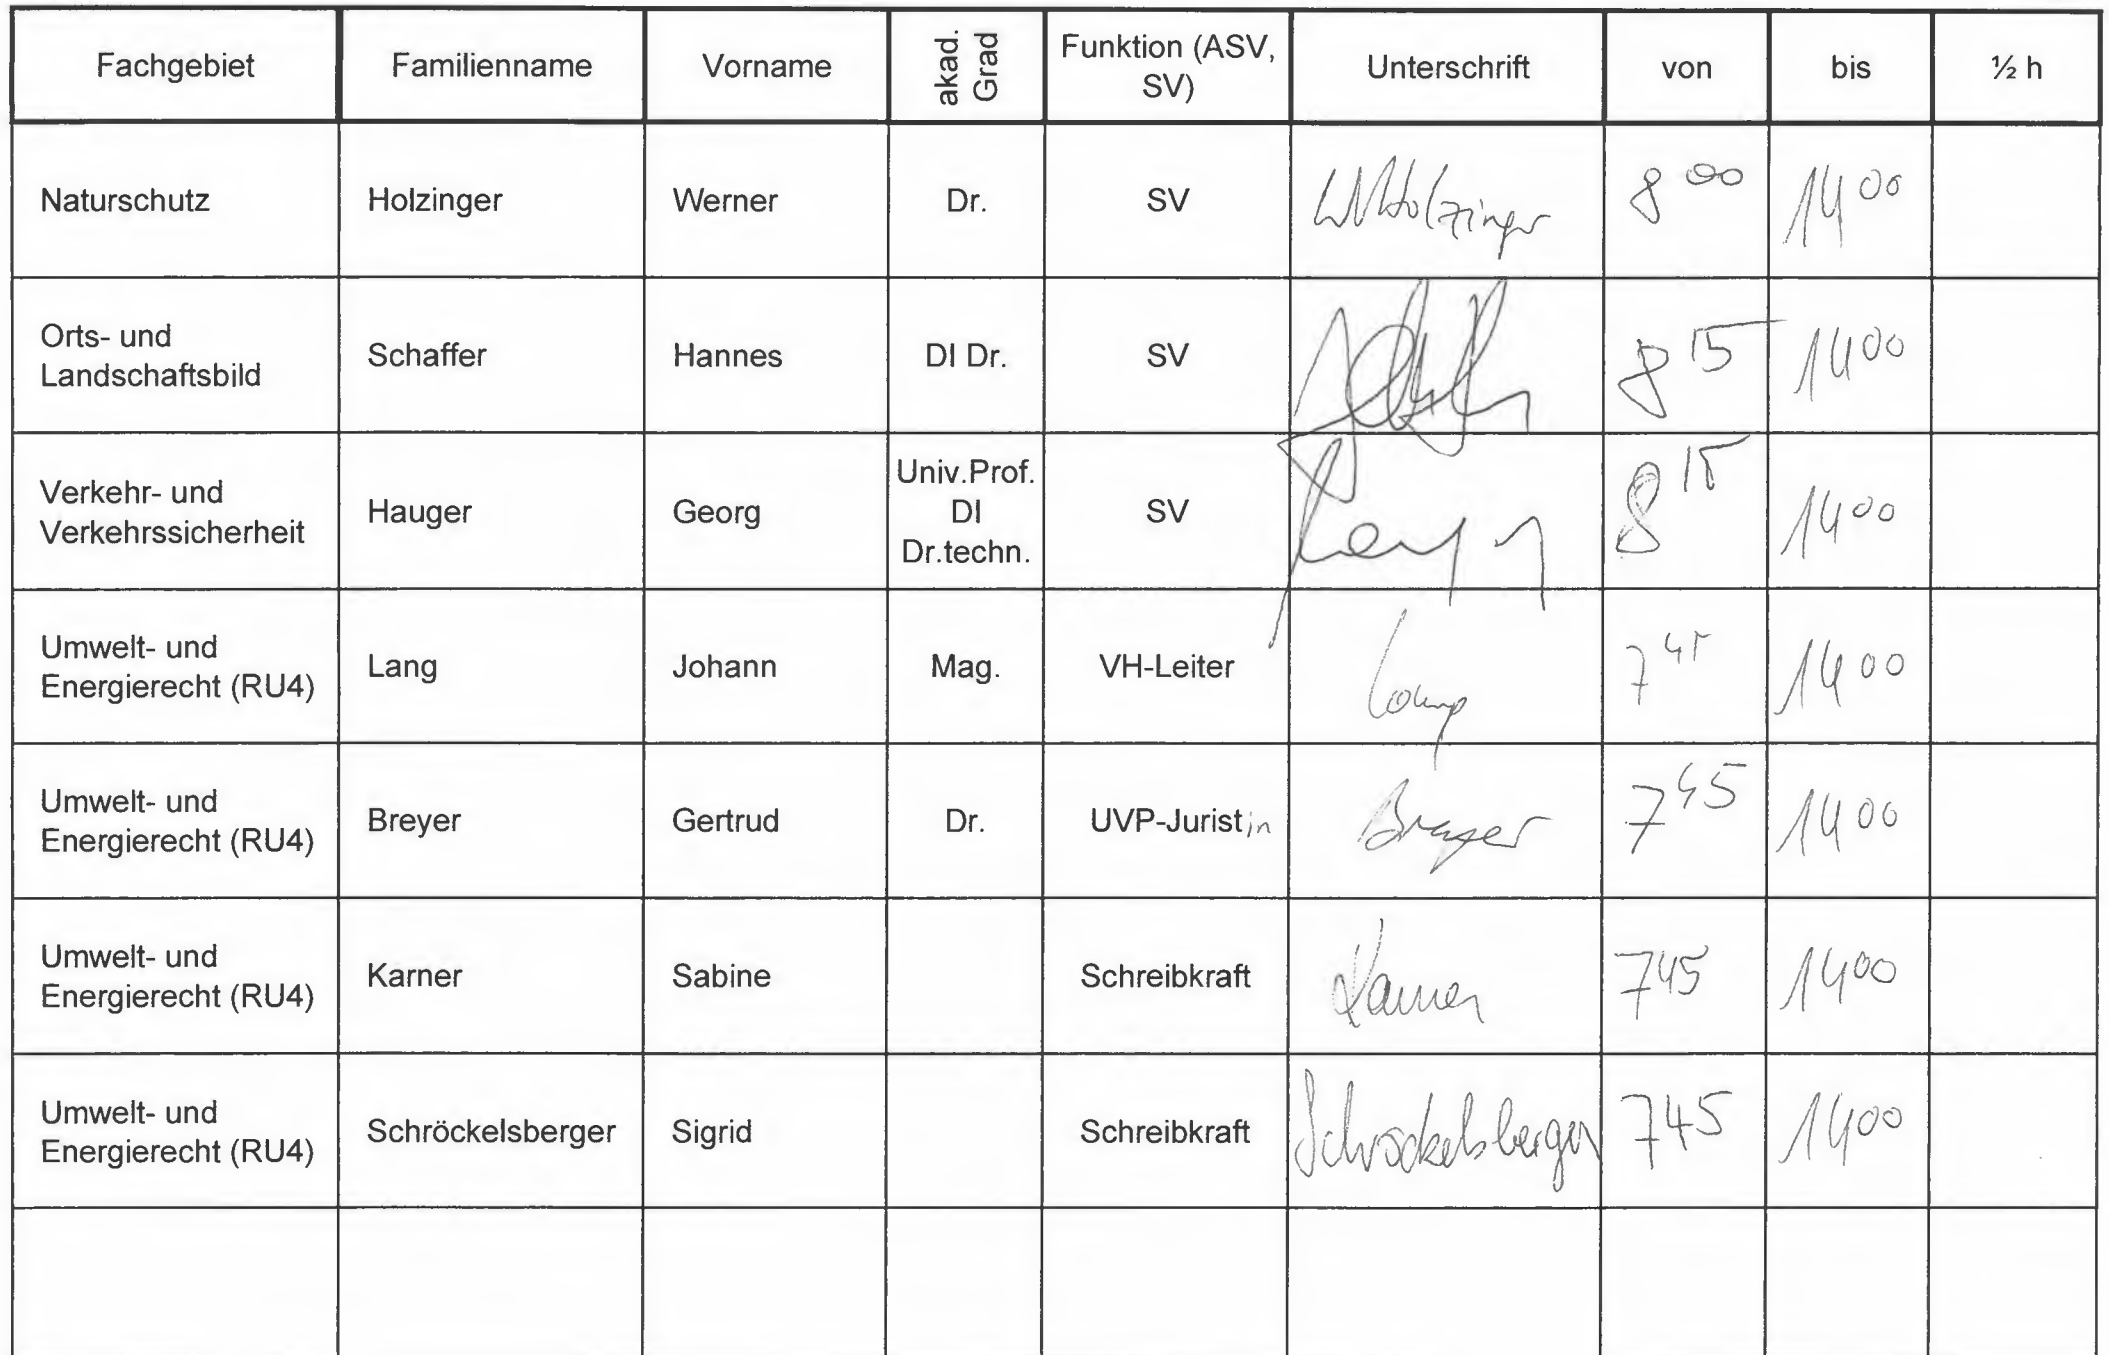 Fachgebiet Familienname Vorname akad. Grad Funktion (ASV, SV) Unterschrift von bis ½ h
Naturschutz Holzinger Werner Dr. SV WHolzinger 8 00 14 00
Orts- und Landschaftsbild Schaffer Hannes DI Dr. SV 8 15 14 00
Verkehr- und Verkehrssicherheit Hauger Georg Univ.Prof. DI Dr.techn. SV 8 15 14 00
Umwelt- und Energierecht (RU4) Lang Johann Mag. VH-Leiter Lang 7 45 14 00
Umwelt- und Energierecht (RU4) Breyer Gertrud Dr. UVP-Juristin Breyer 7 45 14 00
Umwelt- und Energierecht (RU4) Karner Sabine Schreibkraft Karner 7 45 14 00
Umwelt- und Energierecht (RU4) Schröckelsberger Sigrid Schreibkraft Schröckelsberger 7 45 14 00